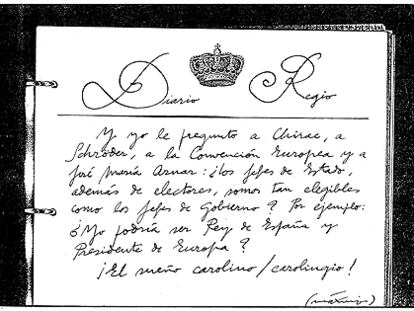 Diario Regio
Y yo le pregunto a Chirac, a
Schröder, a la Convención Europea y a
José María Aznar: ¿los Jefes de Estado,
además de electores, somos tan elegibles
como los Jefes de Gobierno? Por ejemplo:
¿Yo podría ser Rey de España y
Presidente de Europa?
¡El sueño carolino/carolingio!
(máximo)